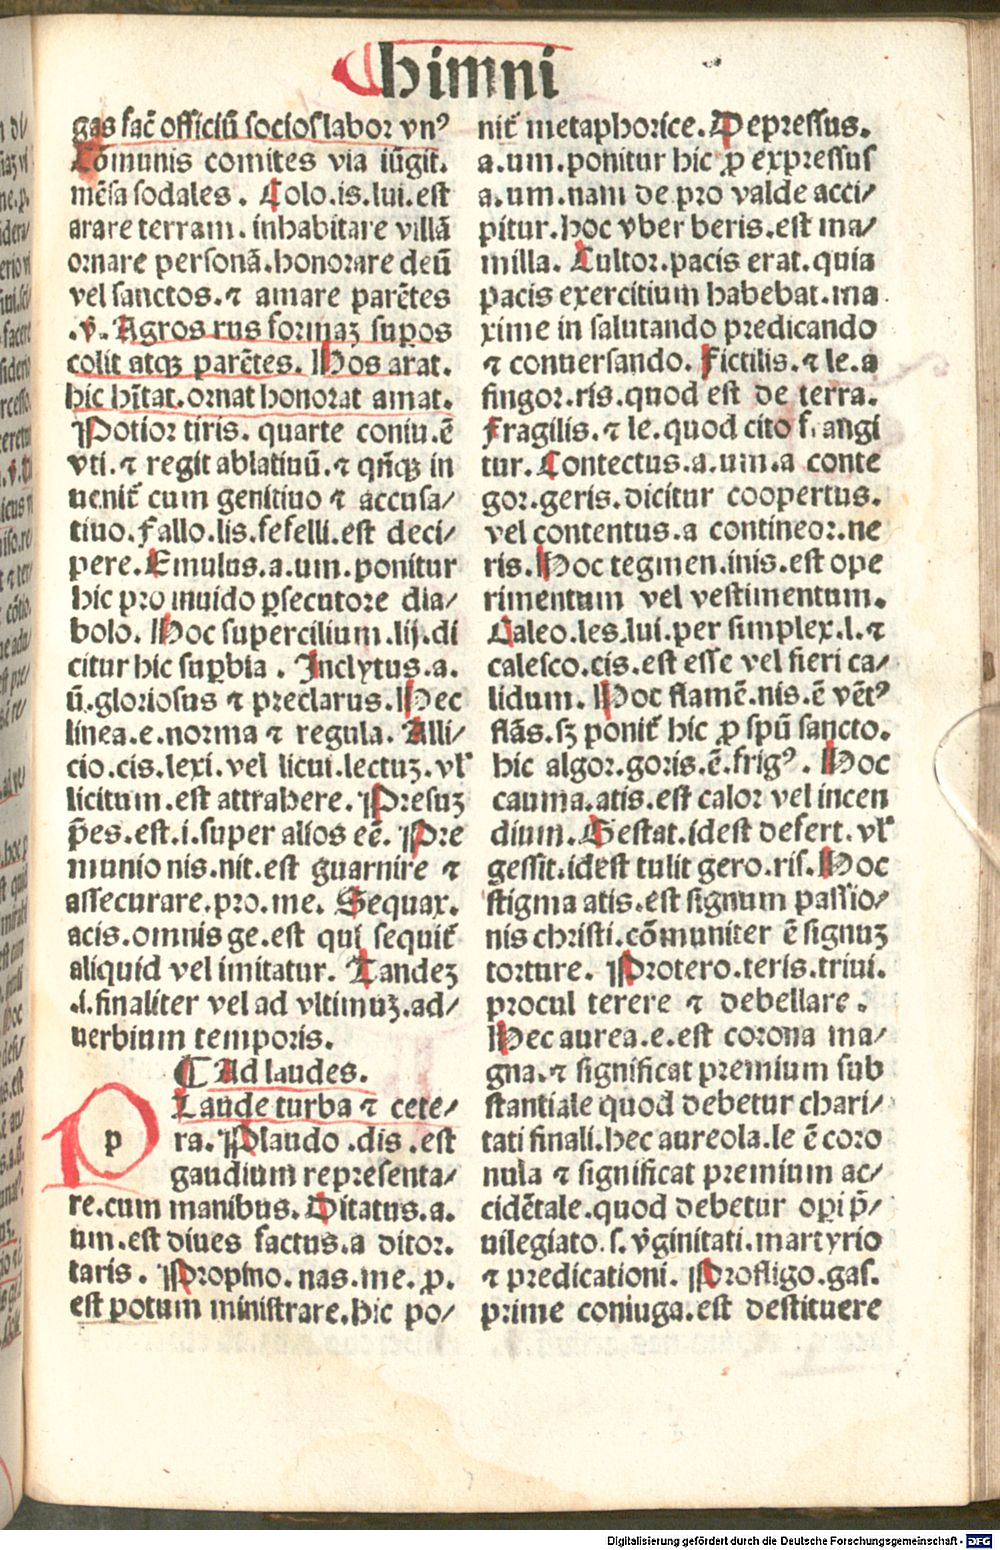 himni
gas fac̄ officiū socios labor vnꝰ
Cōmunis comites via iūgit.
mēsa sodales . Colo.is.lui.est
arare terram. inhabitare villā
ornare personā.honorare deū
vel sanctos.⁊ amare parētes
.v̄. Agros rus formaꝫ supos
colit atqꝫ parētes. Hos arat.
hic hītat.ornat honorat amat.
Potior tiris. quarte coniu.ē
vti.⁊ regit ablatiuū.⁊ qn̄qꝫ in
uenit᷑ cum genitiuo ⁊ accusa/
tiuo. Fallo.lis.fefelli.est deci/
pere. Emulus.a.um.ponitur
hic pro inuido ꝑsecutore dia/
bolo. Hoc supercilium.lij.di
citur hic suꝑbia . Inclytus.a.
ū.gloriosus ⁊ preclarus. Hec
linea.e.norma ⁊ regula. Alli/
cio.cis.lexi.vel licui.lectuꝫ.vl᷑
licitum.est attrahere. Presuꝫ
p̄es.est.i.super alios eē. Pre
munio nis.nit.est guarnire ⁊
assecurare.pro.me. Sequax.
acis.omnis ge.est qui sequit᷑
aliquid vel imitatur. Tandeꝫ
.i.finaliter vel ad vltimuꝫ.ad/
uerbium temporis.
Ad laudes.
p
Laude turba ⁊ cete/
ra. Plaudo .dis .est
gaudium representa/
re.cum manibus. Ditatus.a.
um.est diues factus.a ditor.
taris . Propino. nas.me. ꝓ.
est potum ministrare.hic po/
nit᷑ metaphorice. Depressus.
a.um.ponitur hic ꝓ expressus
a.um.nam de pro valde acci/
pitur.hoc vber beris.est ma/
milla. Cultor.pacis erat.quia
pacis exercitium habebat.ma
xime in salutando predicando
⁊ conuersando. Fictilis.⁊ le.a
fingor.ris.quod est de terra.
Fragilis.⁊ le.quod cito frangi
tur. Contectus.a.um.a conte
gor.geris.dicitur coopertus.
vel contentus.a contineor.ne
ris. Hoc tegmen.inis.est ope
rimentum vel vestimentum.
Caleo.les.lui.per simplex.l.⁊
calesco.cis.est esse vel fieri ca/
lidum. Hoc flamē.nis.ē vēt᷒
flās.sꝫ ponit᷑ hic ꝓ spū sancto.
hic algor.goris.ē.frigꝰ. Hoc
cauma.atis.est calor vel incen
dium. Gestat.idest defert. vl᷑
gessit.idest tulit gero.ris. Hoc
stigma atis.est signum passio/
nis christi.cōmuniter ē signuꝫ
torture. Protero.teris.triui.
procul terere ⁊ debellare .
Hec aurea.e.est corona ma/
gna.⁊ significat premium sub
stantiale quod debetur chari/
tati finali.hec aureola.le ē coro
nula ⁊ significat premium ac/
cidētale.quod debetur oꝑi p̄/
uilegiato.s.v̄ginitati.martyrio
⁊ predicationi. Profligo.gas.
prime coniuga.est destituere
Digitalisierung gefördert durch die Deutsche Forschungsgemeinschaft - DFG